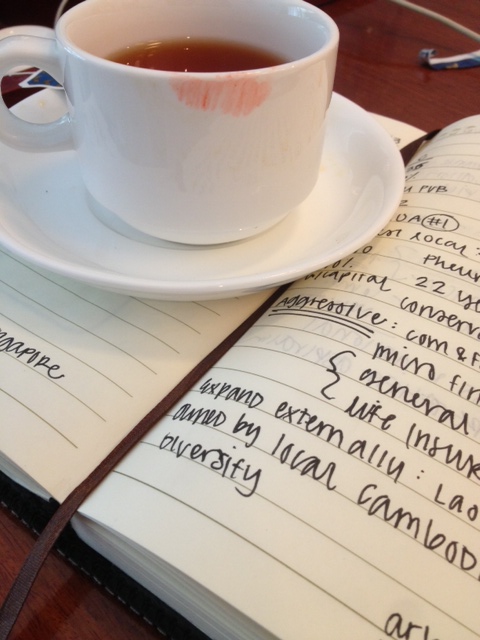 ngapore
PVB
UA #1
local
22 ye
capital conserva
Aggressive: com & F
micro fin
general
life insur
expand externally: Lao
owned by local Cambod
Diversify